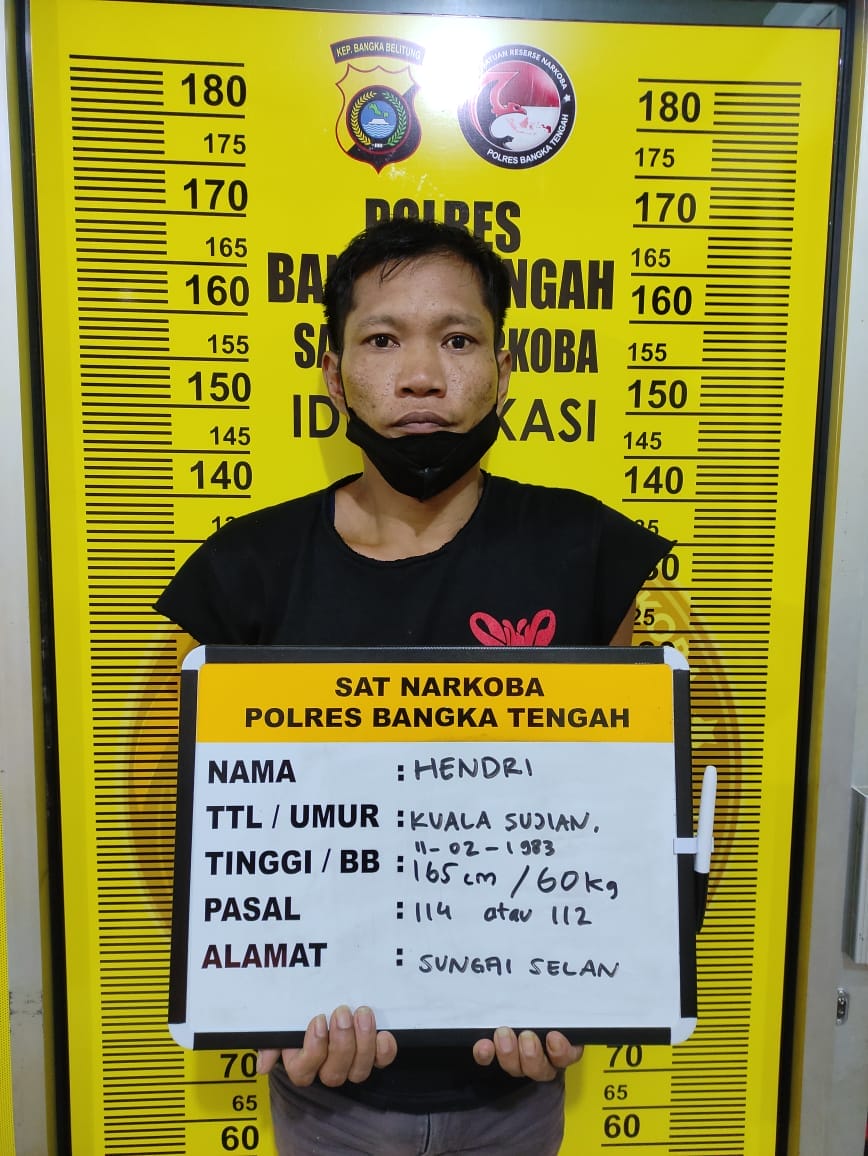 KEP. BANGKA BELITUNG
SATUAN RESERSE NARKOBA
POLRES BANGKA TENGAH
180 180
175 175
170 170
165 165
160 160
155 155
150 150
145 145
140 140
POLRES
NGAH
KOBA
KASI
25
SAT NARKOBA
POLRES BANGKA TENGAH
NAMA : HENDRI
TTL / UMUR : KUALA SUJIAN,
11-02-1983
TINGGI / BB : 165 cm / 60 kg
PASAL : 114 atau 112
ALAMAT : SUNGAI SELAN
70 70
65 65
60 60